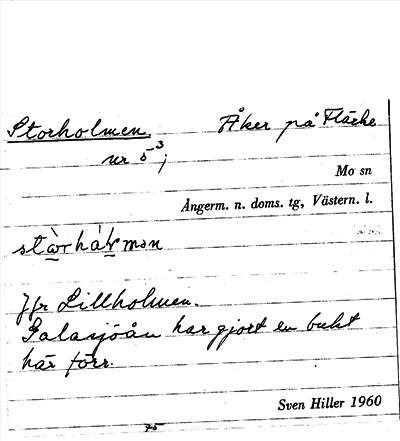 Storholmen. Åker på Fläcke
nr 5³;
Mo sn
Ångerm. n. doms. tg, Västern. l.
stàrhálmən
Jfr Lillholmen.
Galasjöån har gjort en bukt
här förr.
Sven Hiller 1960